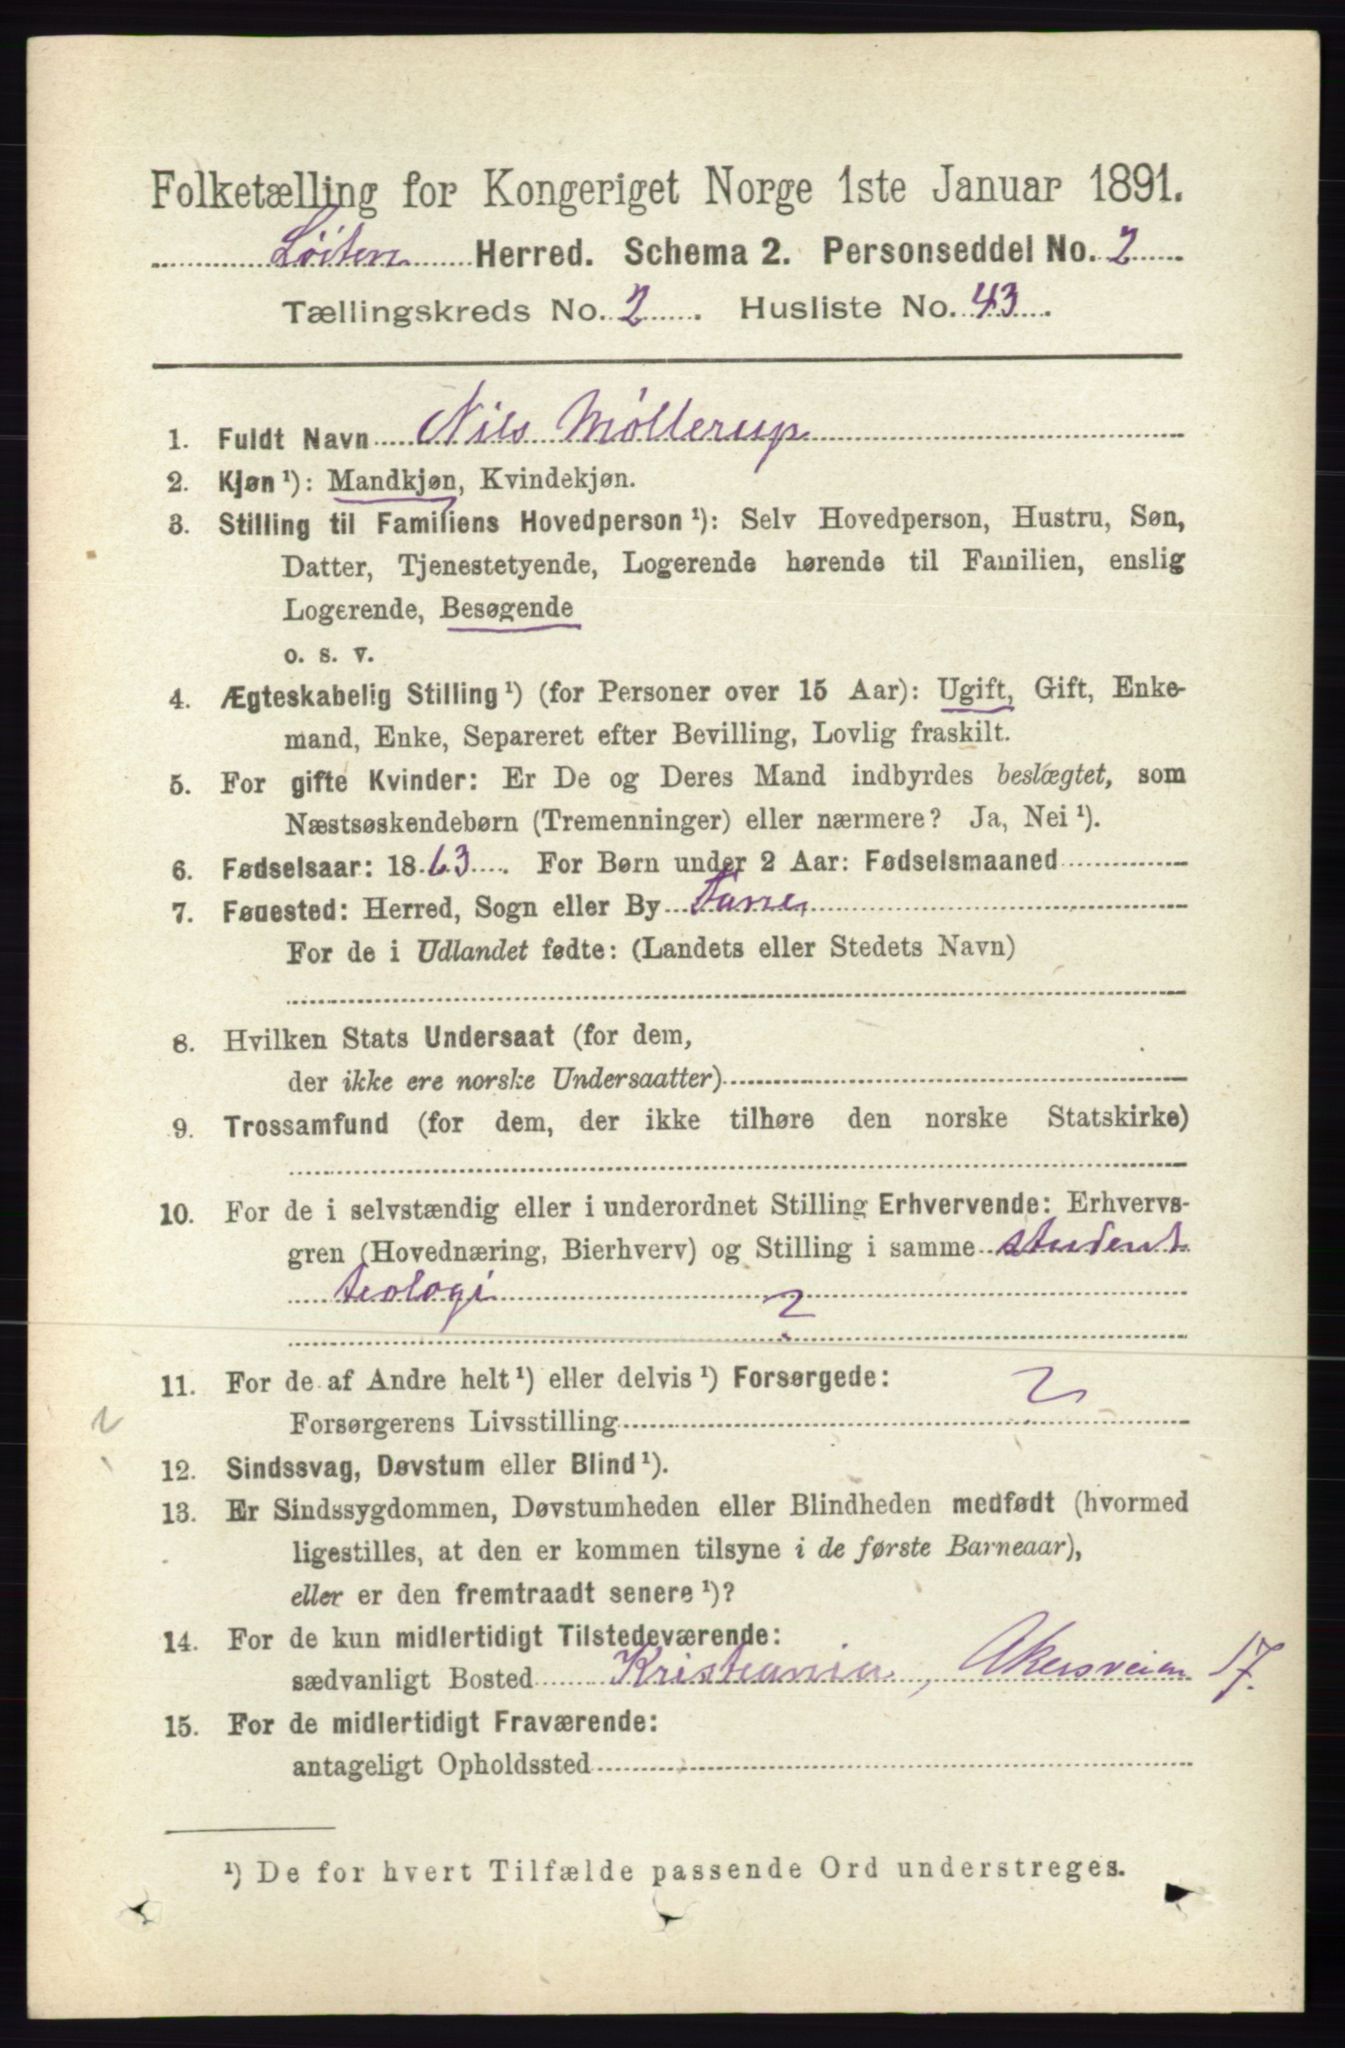 Folketælling for Kongeriget Norge 1ste Januar 1891.
Löiten Herred. Schema 2. Personseddel No. 2
Tællingskreds No. 2. Husliste No. 43.
1. Fuldt Navn Nils Møllerup
2. Kjøn ¹): Mandkjøn, Kvindekjøn.
3. Stilling til Familiens Hovedperson ¹): Selv Hovedperson, Hustru, Søn,
Datter, Tjenestetyende, Logerende hørende til Familien, enslig
Logerende, Besøgende
o. s. v.
4. Ægteskabelig Stilling ¹) (for Personer over 15 Aar): Ugift, Gift, Enke-
mand, Enke, Separeret efter Bevilling, Lovlig fraskilt.
5. For gifte Kvinder: Er De og Deres Mand indbyrdes beslægtet, som
Næstsøskendebørn (Tremenninger) eller nærmere? Ja, Nei ¹).
6. Fødselsaar: 1863. For Børn under 2 Aar: Fødselsmaaned
7. Fødested: Herred, Sogn eller By
For de i Udlandet fødte: (Landets eller Stedets Navn)
8. Hvilken Stats Undersaat (for dem,
der ikke ere norske Undersaatter)
9. Trossamfund (for dem, der ikke tilhøre den norske Statskirke)
10. For de i selvstændig eller i underordnet Stilling Erhvervende: Erhvervs-
gren (Hovednæring, Bierhverv) og Stilling i samme student
teologi
?
11. For de af Andre helt ¹) eller delvis ¹) Forsørgede:
Forsørgerens Livsstilling ?
12. Sindssvag, Døvstum eller Blind ¹).
13. Er Sindssygdommen, Døvstumheden eller Blindheden medfødt (hvormed
ligestilles, at den er kommen tilsyne i de første Barneaar),
eller er den fremtraadt senere ¹)?
14. For de kun midlertidigt Tilstedeværende:
sædvanligt Bosted Kristiania, Akersveien 17.
15. For de midlertidigt Fraværende:
antageligt Opholdssted
¹) De for hvert Tilfælde passende Ord understreges.